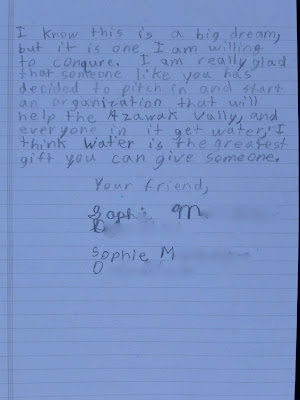 I know this is a big dream,
but it is one I am willing
to conqure. I am really glad
that someone like you has
decided to pitch in and start
an organization that will
help the Azawak Vally, and
everyone in it get water. I
think water is the greatest
gift you can give someone.
Your friend,
Sophie M
Sophie M